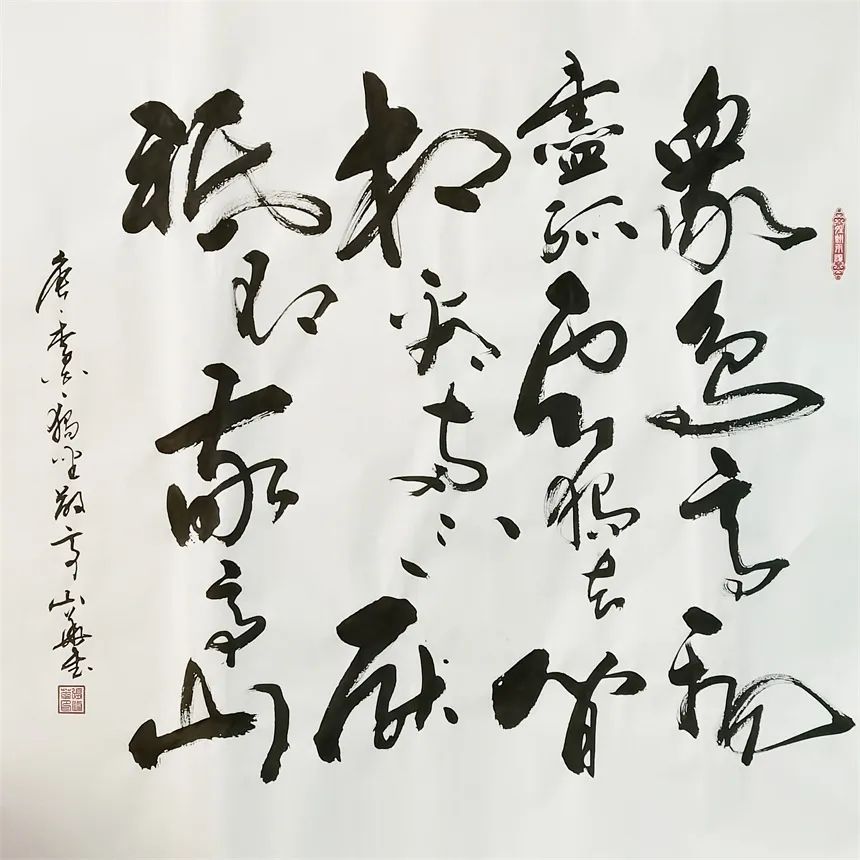 眾鳥高飛
盡孤雲獨去閒
相看兩不厭
祇有敬亭山
唐李白獨坐敬亭山華書